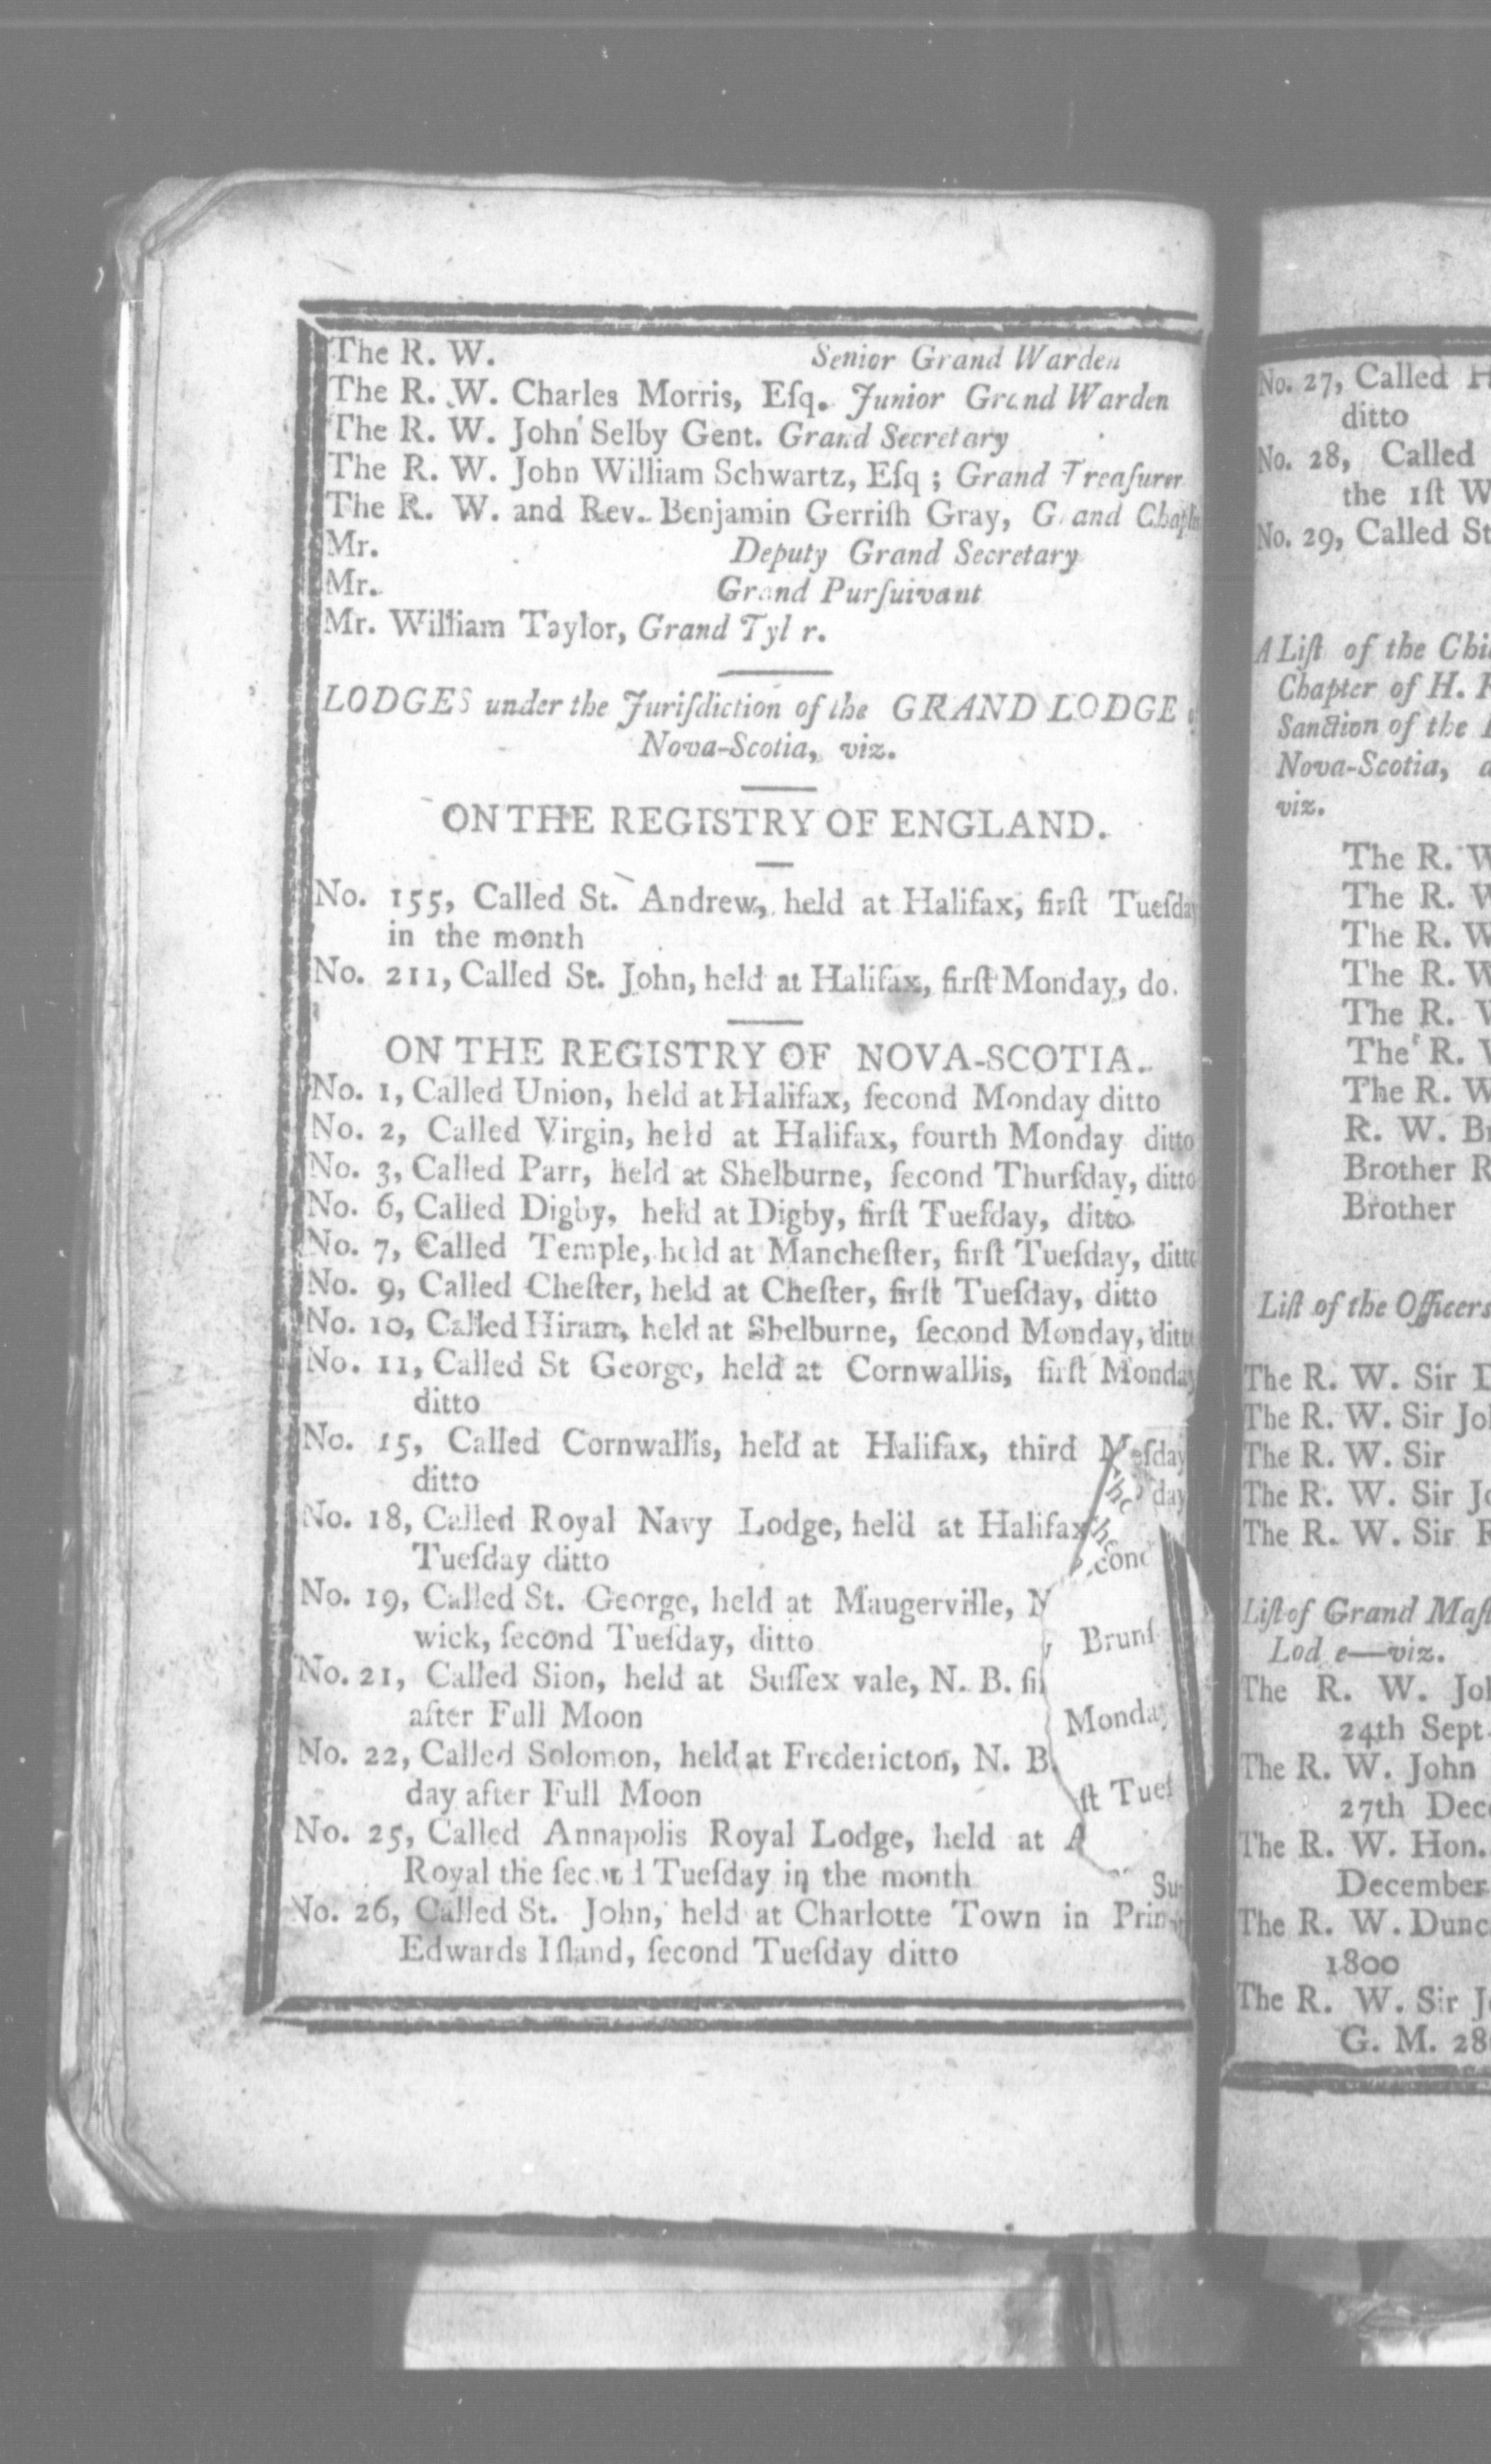 The R. W. Senior Grand Warden
The R. W. Charles Morris, Eſq. Junior Grand Warden
The R. W. John Selby Gent. Grand Secretary
The R. W. John William Schwartz, Eſq ; Grand Treaſurer
The R. W. and Rev. Benjamin Gerriſh Gray, G and Chapl
Mr. Deputy Grand Secretary
Mr. Grand Purſuivant
Mr. William Taylor, Grand Tyl r.
LODGES under the Juriſdiction of the GRAND LODGE
Nova-Scotia, viz.
ON THE REGISTRY OF ENGLAND.
No. 155, Called St. Andrew, held at Halifax, firſt Tueſday
in the month
No. 211, Called St. John, held at Halifax, firſt Monday, do.
ON THE REGISTRY OF NOVA-SCOTIA.
No. 1, Called Union, held at Halifax, ſecond Monday ditto
No. 2, Called Virgin, held at Halifax, fourth Monday ditto
No. 3, Called Parr, held at Shelburne, ſecond Thurſday, ditto
No. 6, Called Digby, held at Digby, firſt Tueſday, ditto
No. 7, Called Temple, held at Mancheſter, firſt Tueſday, ditto
No. 9, Called Cheſter, held at Cheſter, firſt Tueſday, ditto
No. 10, Called Hiram, held at Shelburne, ſecond Monday, ditt
No. 11, Called St George, held at Cornwallis, firſt Monday
ditto
No. 15, Called Cornwallis, held at Halifax, third
ditto
No. 18, Called Royal Navy Lodge, held at Halifax
Tueſday ditto
No. 19, Called St. George, held at Maugerville, N Brunſ
wick, ſecond Tueſday, ditto
No. 21, Called Sion, held at Suſſex vale, N. B. fi Monday
after Full Moon
No. 22, Called Solomon, held at Fredericton, N. B. ſt Tueſ
day after Full Moon
No. 25, Called Annapolis Royal Lodge, held at A
Royal the ſecond Tueſday in the month
No. 26, Called St. John, held at Charlotte Town in Prin
Edwards Iſland, ſecond Tueſday ditto
No. 27, Called H
ditto
No. 28, Called
the 1ſt W
No. 29, Called St
A Liſt of the Chi
Chapter of H. R
Sanction of the
Nova-Scotia, a
viz.
The R. W
The R. W
The R. W
The R. W
The R. W
The R. W
The R. W
R. W. Br
Brother R
Brother
Liſt of the Officers
The R. W. Sir D
The R. W. Sir Joh
The R. W. Sir
The R. W. Sir Jo
The R. W. Sir R
Liſt of Grand Maſt
Lod e—viz.
The R. W. Joh
24th Sept.
The R. W. John
27th Dece
The R. W. Hon.
December
The R. W. Dunc
1800
The R. W. Sir J
G. M. 28